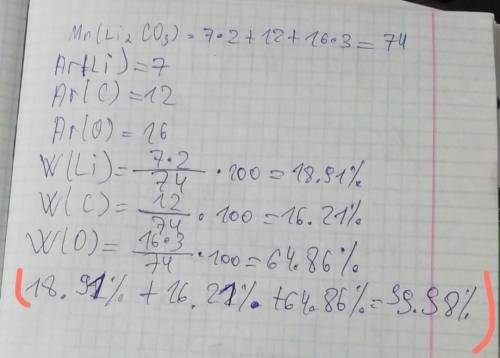 Mr(Li₂CO₃) = 7·2+12+16·3 = 74
Ar(Li)=7
Ar(C)=12
Ar(O)=16
W(Li)= 7·2/74 · 100 = 18.91%
W(C)= 12/74 · 100 = 16.21%
W(O)= 16·3/74 · 100 = 64.86%
(18.91% + 16.21% + 64.86% = 99.98%)